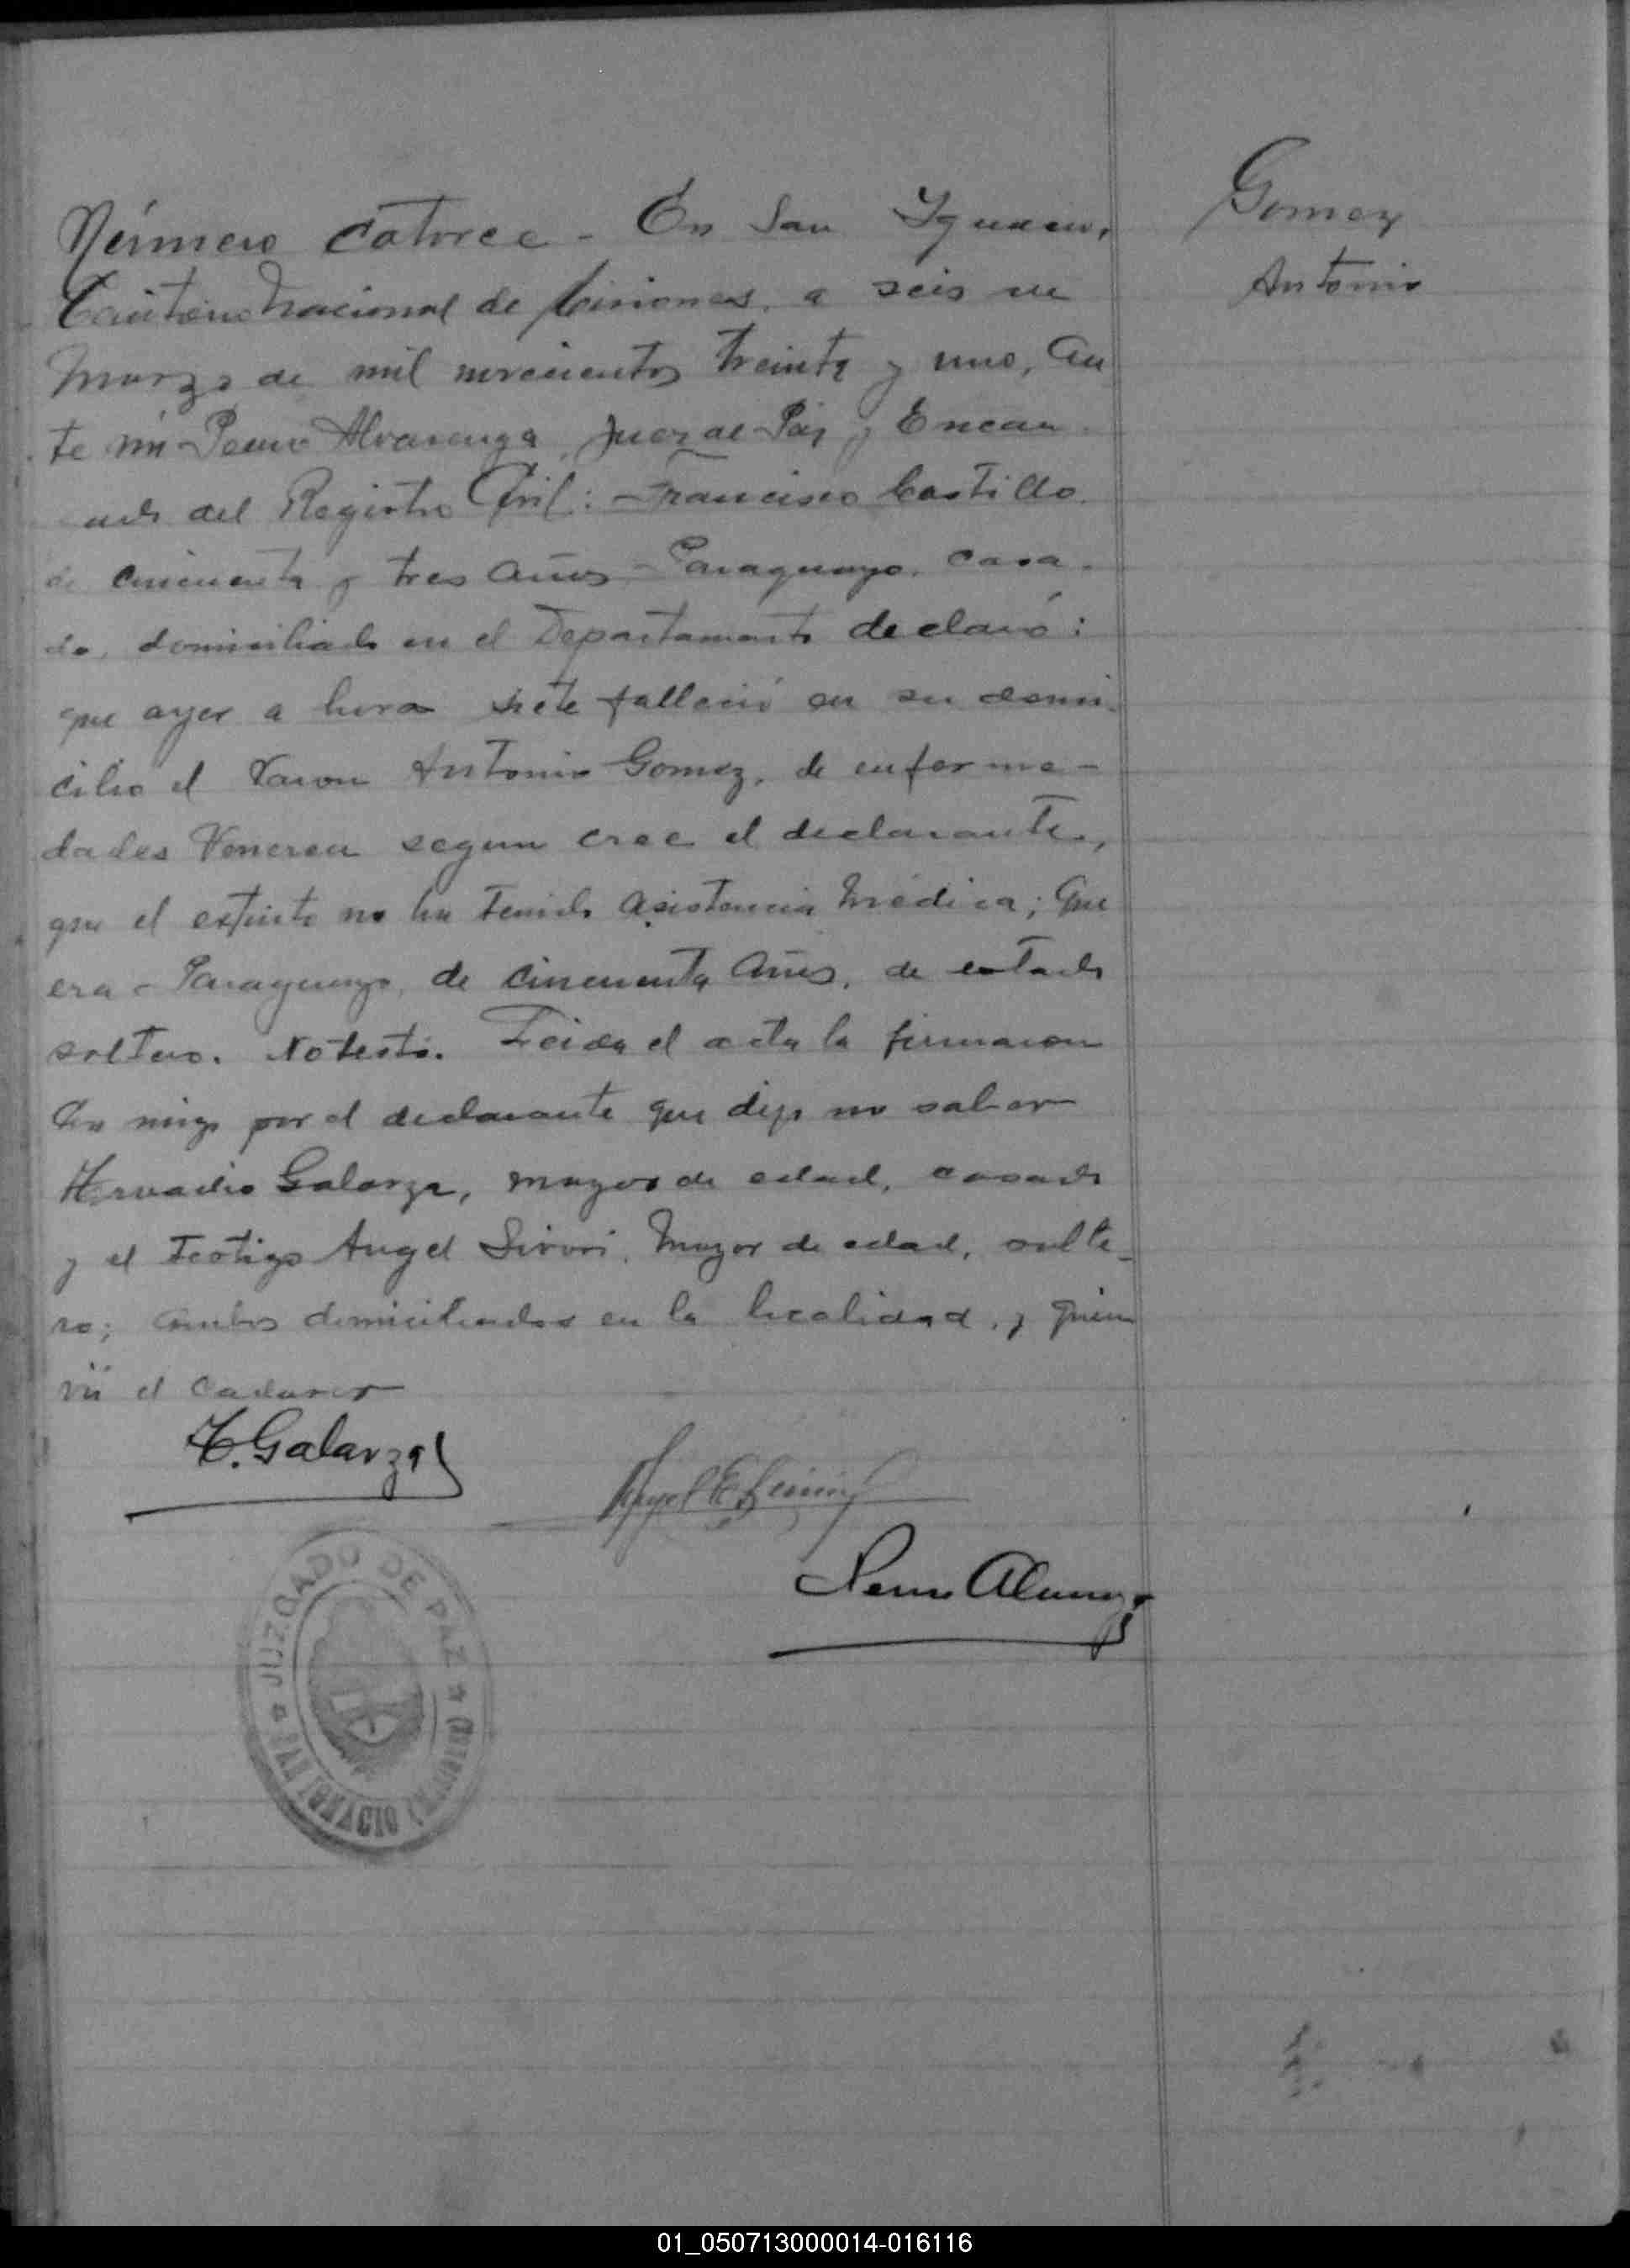 Número Catorce - En San Ygnacio,
Territorio Nacional de Misiones, a seis de
Marzo de mil novecientos treinta y uno, An
te mi Pedro Alvarenga, Juez de Paz y Encar
del Registro Civil: Francisco Castillo
de cincuenta y tres años Paraguayo, casa-
do, domiciliado en el Departamento declaró:
que ayer a hora siete falleció en su domi-
cilio el Varon Antonio Gomez, de enferme-
dades Venerea segun cree el declarante,
que el extinto no ha tenido asistencia Médica; que
era Paraguayo, de cincuenta años, de estado
soltero. No testó. Leida el acta la firmaron
con migo por el declarante que dijo no saber
Galarza, mayor de edad, casado
y el Testigo Angel Sivori, Mayor de edad, solte-
ro; ambos domiciliados en la localidad, y quien
vió el cadaver
H. Galarza
Angel E.
Pedro Alvarenga
JUZGADO DE PAZ
SAN IGNACIO (MISIONES)
Gomez
Antonio
01_050713000014-016116